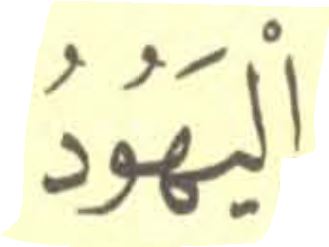 اْليَهُودُ